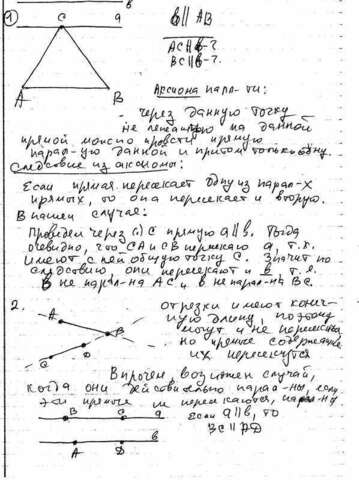 в
① C a
в || AB
AC || в - ?
BC || в - ?
A B
Аксиома парал-ти:
- через данную точку
не лежащую на данной
прямой можно провести прямую
парал-ую данной и притом только одну.
Следствие из аксиомы:
Если прямая пересекает одну из парал-х
прямых, то она пересекает и вторую.
В нашем случае:
Проведем через (·) C прямую a || в. Тогда
очевидно, что CA и CB пересекаю a, т.к.
имеют с ней общую точку C. Значит по
следствию, они пересекают и в, т.е.
в не парал-на AC и в не парал-на BC.
2. отрезки имеют конеч-
A ную длину, поэтому
B могут и не пересечься
но прямые содержащие
C D их пересекутся
Впрочем возможен случай,
когда они действительно парал-ны, если
эти прямые не пересекаются, парал-ны
B C a Если a || в, то
в BC || AD
A D